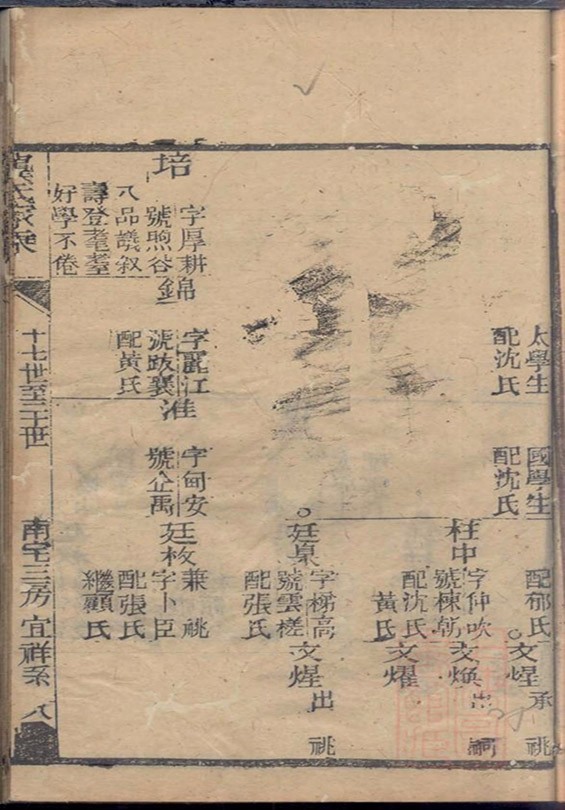 太學生
配沈氏
國學生
配沈氏
配郁氏
文煋
承祧
柱中
字仲吹
號棟
配沈氏
黃氏
文煥
出嗣
文燿
廷枲
字梯高
號雲槎
配張氏
文煋
出祧
培
字厚耕
號煦谷
八品議叙
壽登耄耋
好學不倦
錦
字麗江
號跋襄
配黃氏
淮
字甸安
號企禹
廷枚
兼祧
字卜臣
配張氏
繼顧氏
氏家乘
十七世至二十世
南宅三房
宜祥系
八